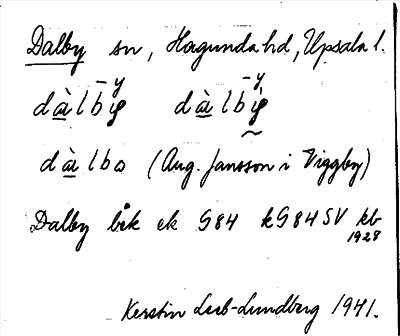 Dalby sn, Hagunda hd, Upsala l.
dàlby dàlby
dàlbo (Aug. Jansson i Viggby)
Dalby bik ek G84 kG84SV kb 1928
Kerstin Leeb-Lundberg 1941.